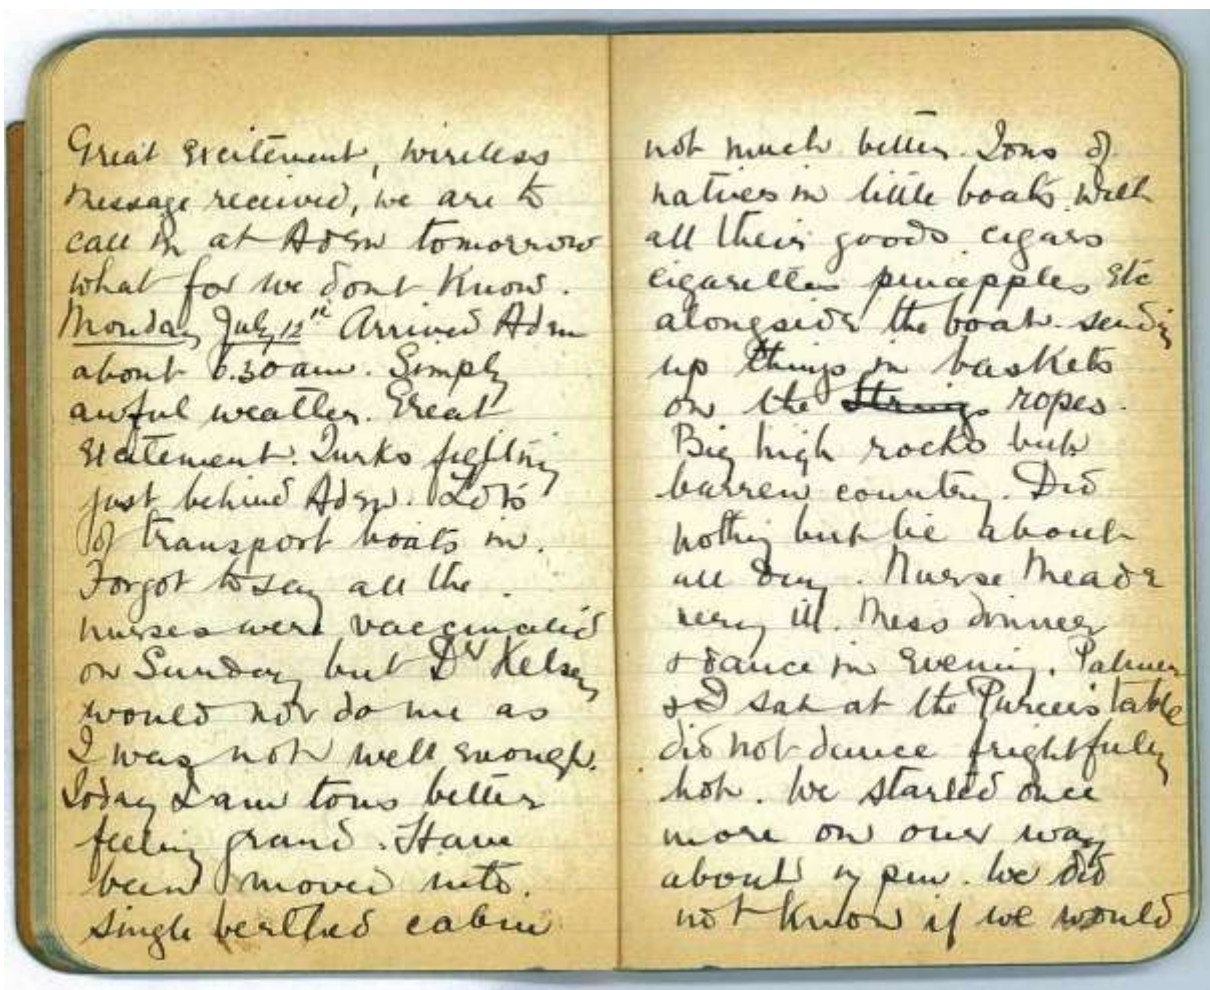 Great excitement, wireless
message received, we are to
call in at Aden tomorrow
what for we dont know.
Monday July 12th Arrived Aden
about 6.30 am. Simply
awful weather. Great
excitement. Turks fighting
just behind Aden. Lots
of transport boats in.
Forgot to say all the
nurses were vaccinated
on Sunday but Dr Kelsey
would not do me as
I was not well enough.
Today I am tons better
feeling grand. Have
been moved into
single berthed cabin
not much better. Tons of
natives in little boats with
all their goods cigars
cigarettes pineapples etc
alongside the boat sending
up things in baskets
on the strings ropes.
Big high rocks but
barren country. Did
nothing but lie about
all day. Nurse Meade
very ill. Mess dinner
& dance in evening. Palmer
& I sat at the table
did not dance frightfully
hot. We started once
more on our way
about pm. We did
not know if we would